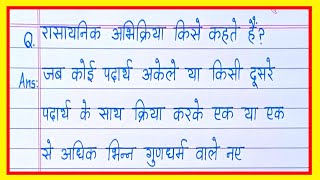 Q. रासायनिक अभिक्रिया किसे कहते हैं?
Ans: जब कोई पदार्थ अकेले या किसी दूसरे
पदार्थ के साथ क्रिया करके एक या एक
से अधिक भिन्न गुणधर्म वाले नए